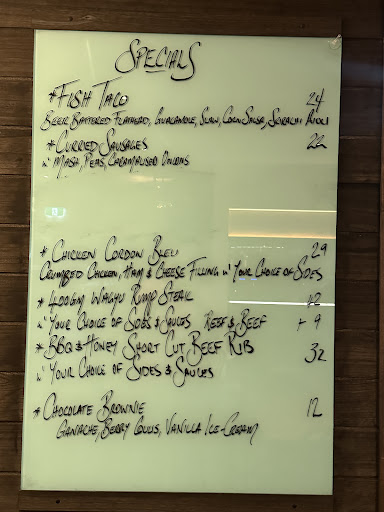 SPECIALS
* FISH TACO 24
BEER BATTERED FLATHEAD, GUACAMOLE, SLAW, CORN SALSA, SIRACHI AIOLI
* CURRIED SAUSAGES 22
W' MASH, PEAS, CARAMALISED ONIONS
* CHICKEN CORDON BLEU 29
CRUMBED CHICKEN, HAM & CHEESE FILLING W' YOUR CHOICE OF SIDES
* 400GM WAGYU RUMP STEAK
W' YOUR CHOICE OF SIDES & SAUCES REEF & BEEF + 9
* BBQ & HONEY SHORT CUT BEEF RIB 32
W' YOUR CHOICE OF SIDES & SAUCES
* CHOCOLATE BROWNIE 12
GANACHE, BERRY COULIS, VANILLA ICE-CREAM